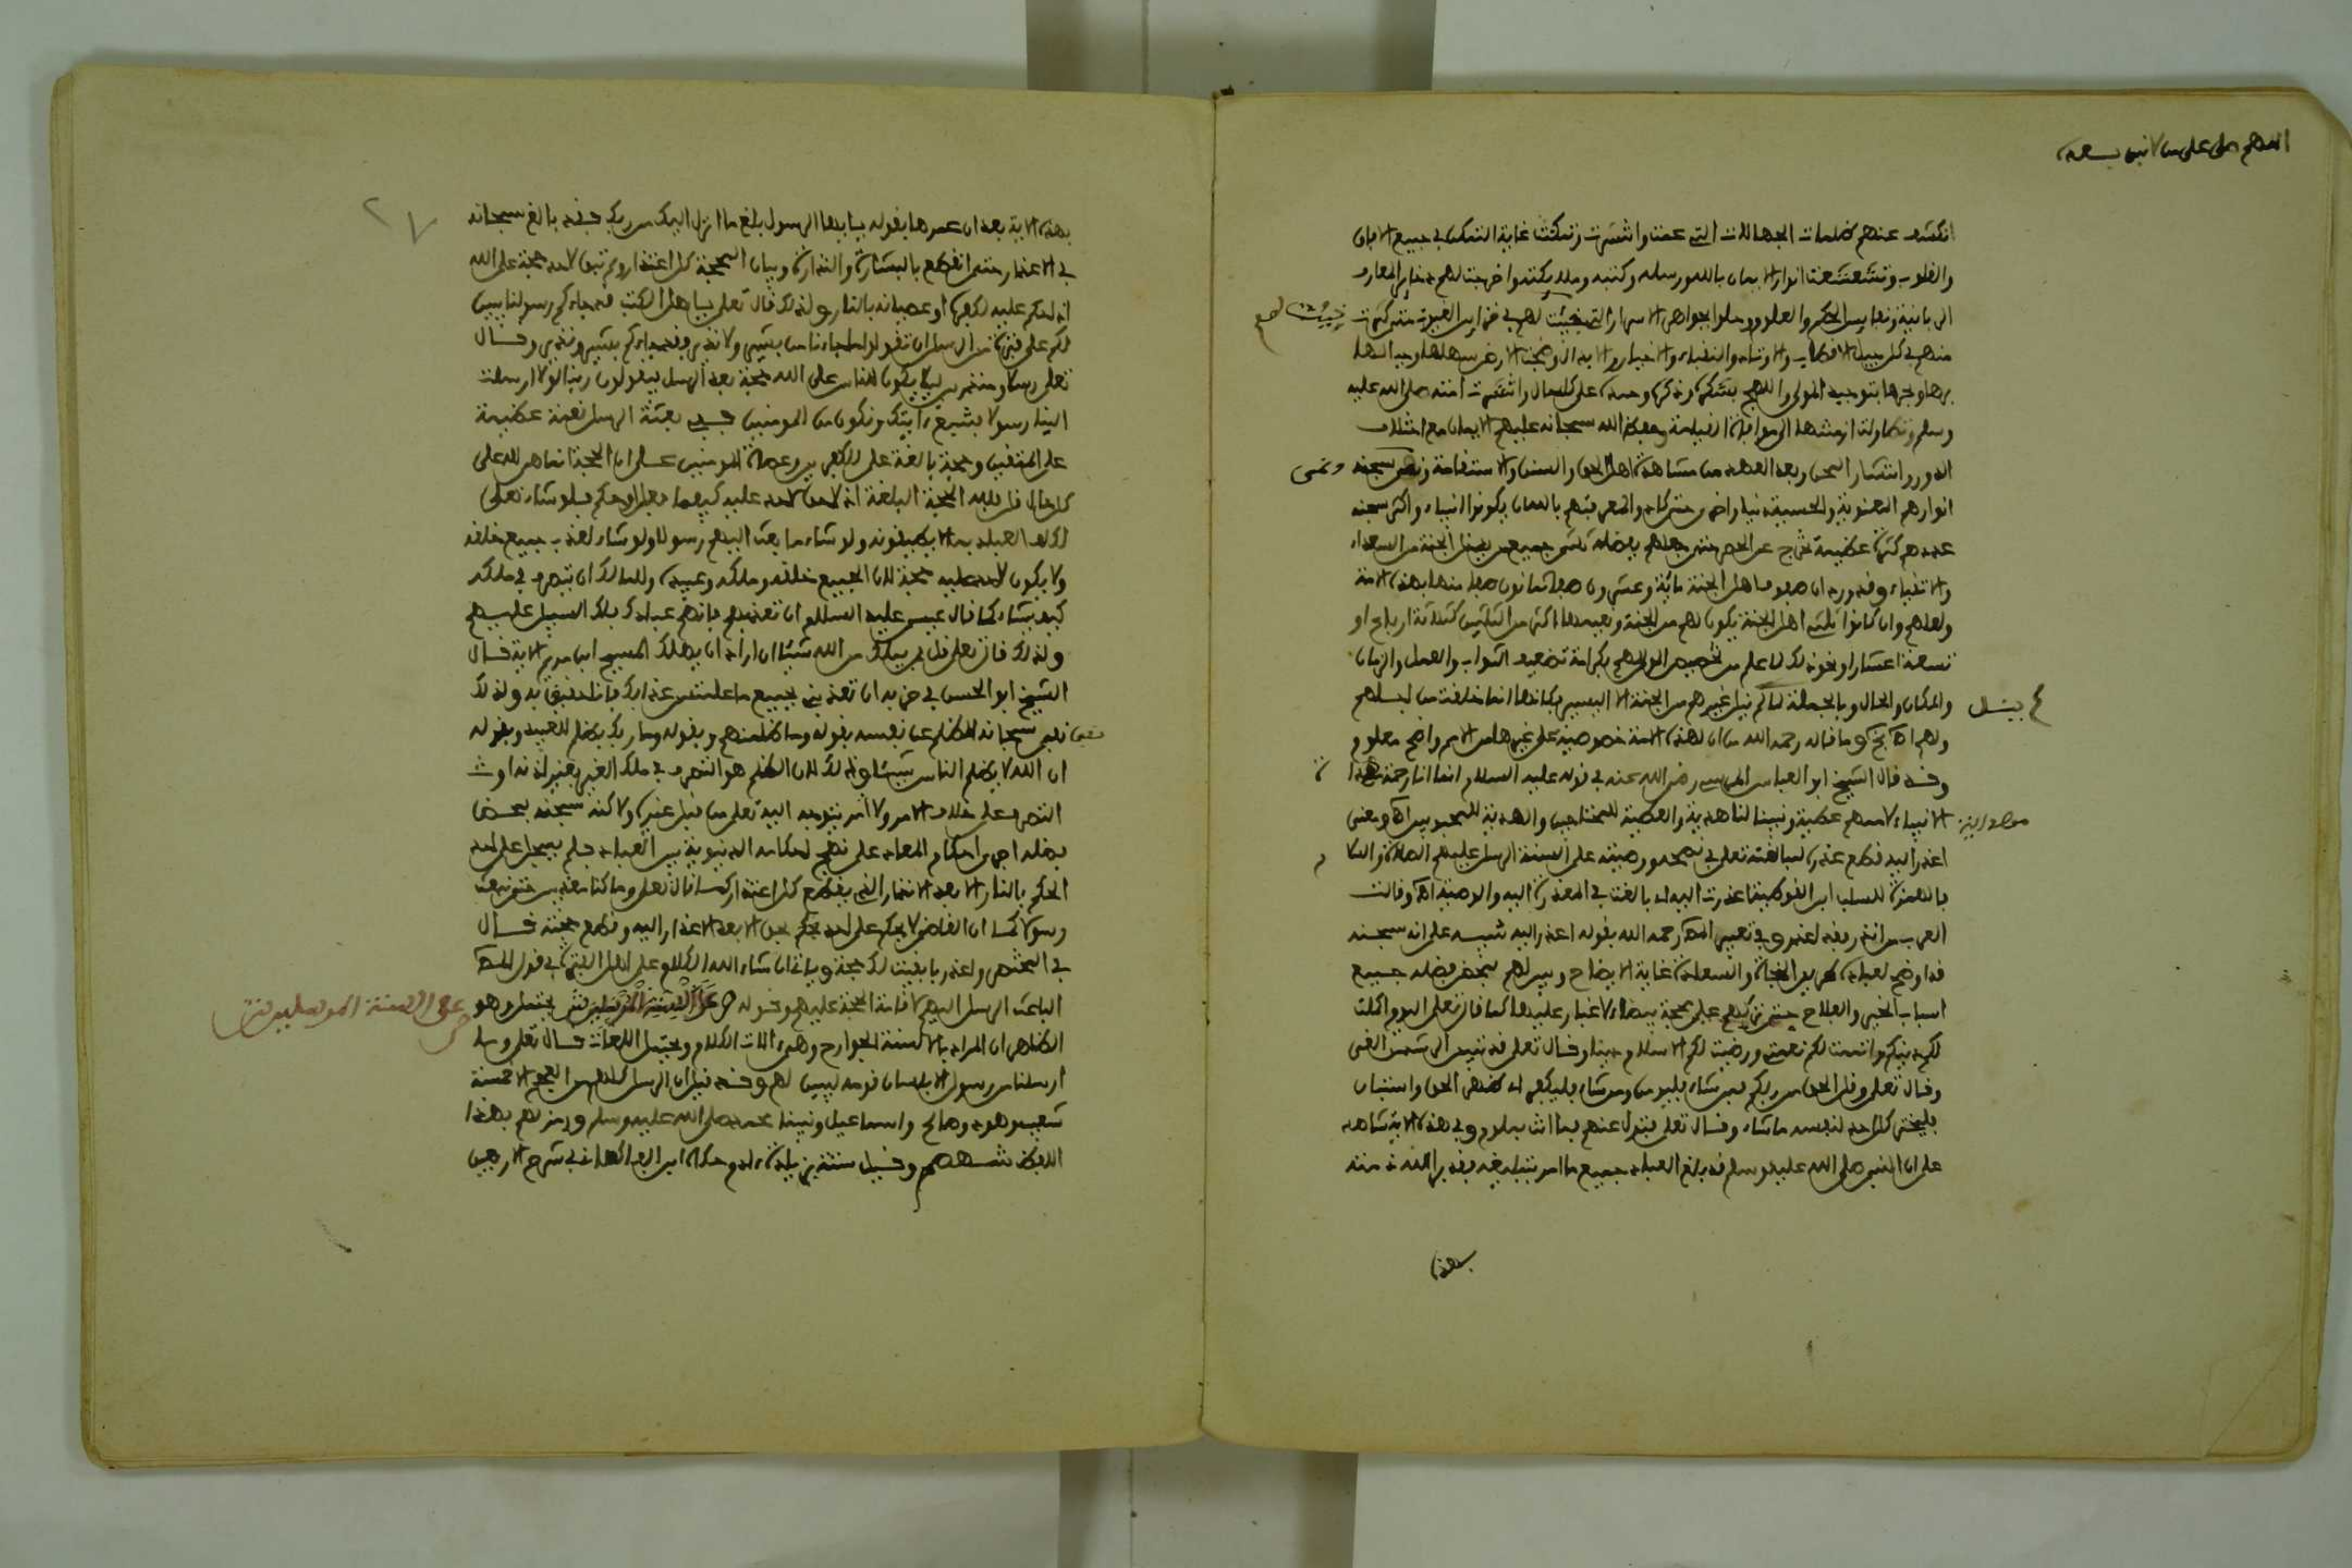 اللهم صل على من لا نبي بعده
انكشف عنهم ظلمات الجهالات التي عمت وانتشرت وتمكنت غاية التمكن في جميع الافاق
والقلوب وتشعشعت انوار الايمان بالله ورسله وكتبه وملائكته واخرجت لهم ذخاير المعارف
الربانية ونفايس الحكم والعلوم وجلوا جواهر الاسرار التي خبئت لهم في خزاين الغيوب
خبئت لهم
منهم في كل جيل الاقطاب والاوتاد والنقباء والاخيار والابدال وضجت الارض سهلها وجبالها
برها وبحرها بتوحيد المولى واللهج بشكره وذكره وحمده على كل حال وانتشرت امته صلى الله عليه
وسلم وتطاولت ازمنتها الى موافاة القيامة وحفظ الله سبحانه عليهم الايمان مع اختلاف
الدور وانتشار المحن وبعد العهد من مشاهدة اهل الحق والسنن والاستقامة
انوارهم المعنوية والحسية دنيا واخرى حتى كاد والمعرفتهم بالله ان يكونوا انبياء واكثر سبحنه
عددهم كثرة عظيمة تخرج عن الحصر حتى جعلهم بفضله ثلثي جميع من يدخل الجنة من السعداء
والاتقياء وقد ورد ان صفوف اهل الجنة مائة وعشرون صفا ثمانون صفا منها بهذه الامة
ولعلهم وان كانوا ثلثي اهل الجنة يكون لهم من الجنة ونعيمها اكثر من الثلثين كثلاثة ارباع او
تسعة اعشار او نحو ذلك لما علم من تخصيص المولى لهم بكرامة تضعيف الثواب والعمل والزمان
والمكان والحال وبالجملة لم ينل غيرهم من الجنة الا اليسير فكانها انما خلقت من اجلهم
ينل
ولهم اه بخ وما قاله رحمه الله من ان لهذه الامة خصوصية على غيرها من الامم واضح معلوم
وقد قال الشيخ ابو العباس المرسي رضي الله عنه في قوله عليه السلام انما انا رحمة مهداة
الانبياء لاممهم عطية ونبينا لنا هدية والعطية للمحتاجين والهدية للمحبوبين اه ومعنى
اعذر اليه قطع عذره لمبالغته تعلى في نصحه ووصيته على السنة الرسل عليهم الصلاة والسلام
بالمعذرة للسلب ابن القوطية اعذرت اليه اي بالغت في المعذرة اليه والوصية اه وقالت
العرب من انذر فقد اعذر وفي تعبير المص رحمه الله بقوله اعذر اليه تنبيه على انه سبحنه
قد اوضح لعباده طريق النجاة والسعادة غاية الايضاح ويسر لهم بمحض فضله جميع
اسباب الخير والفلاح حتى تركهم على محجة بيضاء لا غبار عليها كما قال تعلى اليوم اكملت
لكم دينكم واتممت لكم نعمتي ورضيت لكم الاسلام دينا وقال تعلى قد تبين الرشد من الغي
وقال تعلى وقل الحق من ربكم فمن شاء فليومن ومن شاء فليكفر اي ظهر الحق واستبان
فليختر كل احد لنفسه ما شاء وقال تعلى فتول عنهم فما انت بملوم وفي هذه الاية شاهد
على ان النبي صلى الله عليه وسلم قد بلغ العباد جميع ما امر بتبليغه فقد برات ذمته
بهذه
٢٧
بهذه الاية بعد ان عمرها بقوله يايها الرسول بلغ ما انزل اليك من ربك فقد بالغ سبحانه
في الاعذار حتى انقطع بالبشارة والنذارة وبيان المحجة كل اعتذار ولم تبق لاحد حجة على الله
اذا حكم عليه لكفره او عصيانه بالنار ولذلك قال تعلى يا اهل الكتب قد جاءكم رسولنا يبين
لكم على فترة من الرسل ان تقولوا ما جاءنا من بشير ولا نذير فقد جاءكم بشير ونذير وقال
تعلى رسلا ومنذرين ليلا يكون للناس على الله حجة بعد الرسل فيقولون ربنا لولا ارسلت
الينا رسولا فنتبع ءايتك ونكون من المومنين ففي بعثة الرسل نعمة عظيمة
على المتقين وحجة بالغة على الكافرين وعصاة المومنين على ان الحجة انما هي لله على
كل حال قل فلله الحجة البالغة اذ لا حق لاحد عليه كيفما فعل او حكم فلو شاء تعلى
لكلف العباد بما لا يطيقونه ولو شاء ما بعث اليهم رسولا ولو شاء لعذب جميع خلقه
ولا يكون لاحد عليه حجة لان الجميع خلقه وملكه وعبيده وللمالك ان يتصرف في ملكه
كيف يشاء كما قال عيسى عليه السلام ان تعذبهم فانهم عبادك فلا السبيل عليهم
ولذلك قال تعلى قل فمن يملك من الله شيئا ان اراد ان يهلك المسيح ابن مريم الاية قال
الشيخ ابو الحسن في حزبه ان تعذبني بجميع ما علمت من عذابك فانا حقيق به ولذلك
نفى سبحانه الظلم عن نفسه بقوله وما ظلمنهم وبقوله وما ربك بظلم للعبيد وبقوله
ان الله لا يظلم الناس شيئا وذلك لان الظلم هو التصرف في ملك الغير بغير اذنه او
التصرف على خلاف الامر ولا امر يتوجه اليه تعلى من قبل غيره ولاكنه سبحنه بمحض
فضله اجرى احكام المعاد على نهج احكامه الدنيوية بين العباد فلم يسجل على احد
الحكم بالنار الا بعد الانذار الذي يقطع كل اعتذار كما قال تعلى وما كنا معذبين حتى نبعث
رسولا كما ان القاضي لا يحكم على احد بحكم بحق الا بعد الاعذار اليه وقطع حجته قال
في المختصر واعذر باقيت لك حجة وياتي ان شاء الله الكلام على اهل الفترة في قول المص
الباعث الرسل اليهم لاقامة الحجة عليهم وقوله ص على السنة المرسلين ش يحتمل وهو
ص على السنة المرسلين ش
الظاهر ان المراد بالالسنة الجوارح وهي الات الكلام ويحتمل اللغات قال تعلى وما
ارسلنا من رسول الا بلسان قومه ليبين لهم وقد قيل ان الرسل كلهم من العجم الا خمسة
شعيب وهود وصالح واسماعيل ونبينا محمد صلى الله عليه وسلم ورمز لهم بهذا
اللفظ شهصم وقيل ستة بزيادة ءادم حكاه ابن الفاكهاني في شرح الاربعين